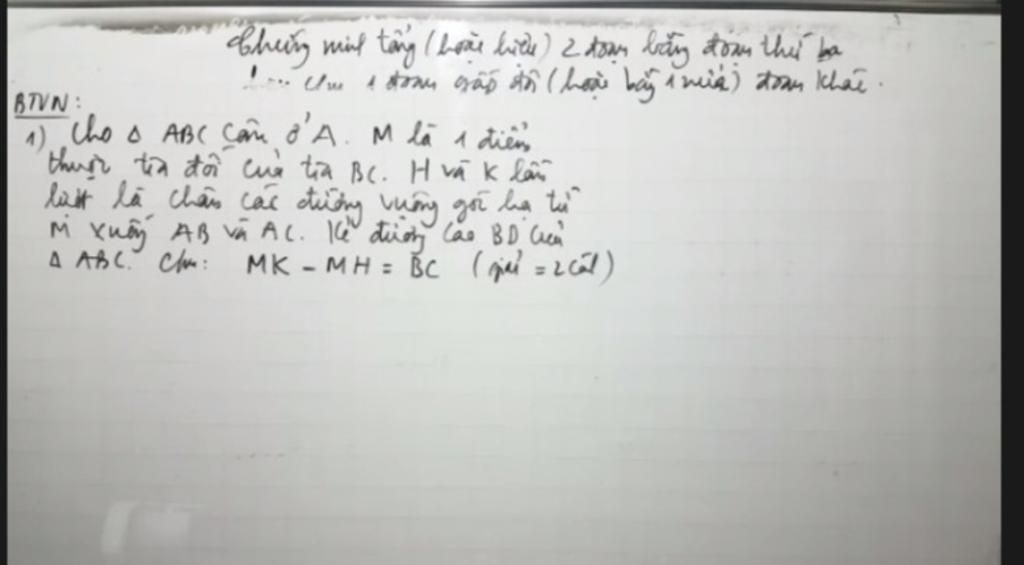 Chứng minh tổng (hoặc hiệu) 2 đoạn bằng đoạn thứ ba
!.... Cm 1 đoạn gấp đôi (hoặc bằng 1 nửa) đoạn khác.
BTVN:
1) Cho Δ ABC cân ở A. M là 1 điểm
thuộc tia đối của tia BC. H và K lần
lượt là chân các đường vuông góc hạ từ
M xuống AB và AC. Kẻ đường cao BD của
Δ ABC. Cm: MK - MH = BC (giải = 2 cách)